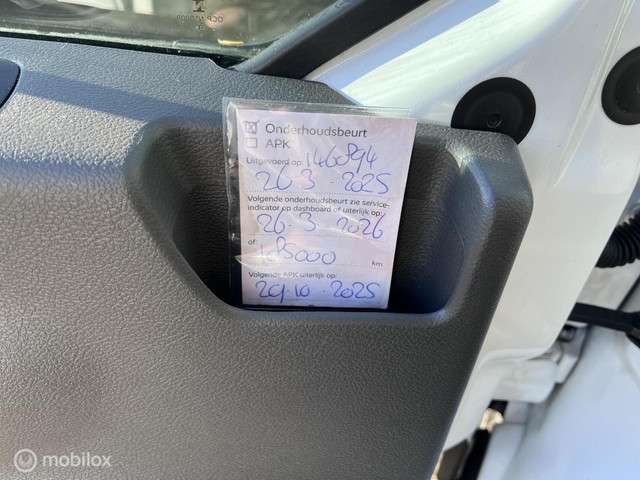 Onderhoudsbeurt
APK
Uitgevoerd op: 146894
26-3-2025
Volgende onderhoudsbeurt zie service-
indicator op dashboard of uiterlijk op:
26-3-2026
of:
185000 km
Volgende APK uiterlijk op:
29-10-2025
mobilox